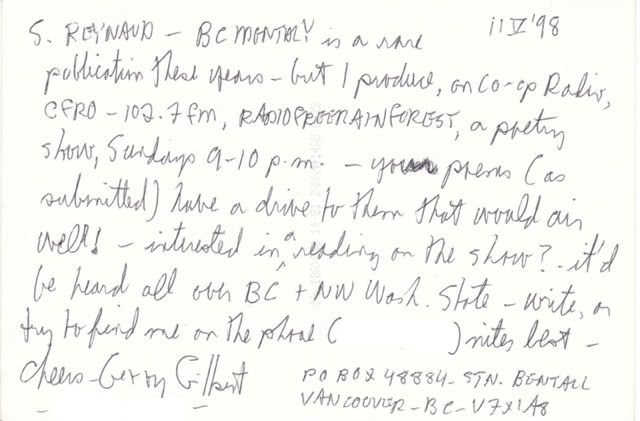 S. REYNAUD - BC MONTHLY is a rare 11 V '98
publication these years - but I produce, on Co-op Radio,
CFRO - 102.7 fm, RADIOFREERAINFOREST, a poetry
show, Sundays 9-10 p.m. - your poems (as
submitted) have a drive to them that would air
well! - interested in a reading on the show? it'd
be heard all over BC + NW Wash. State - write, or
try to find me on the phone ( ) nites best -
cheers - Gerry Gilbert
PO BOX 48884 - STN. BENTALL
VANCOUVER - BC - V7X 1A8